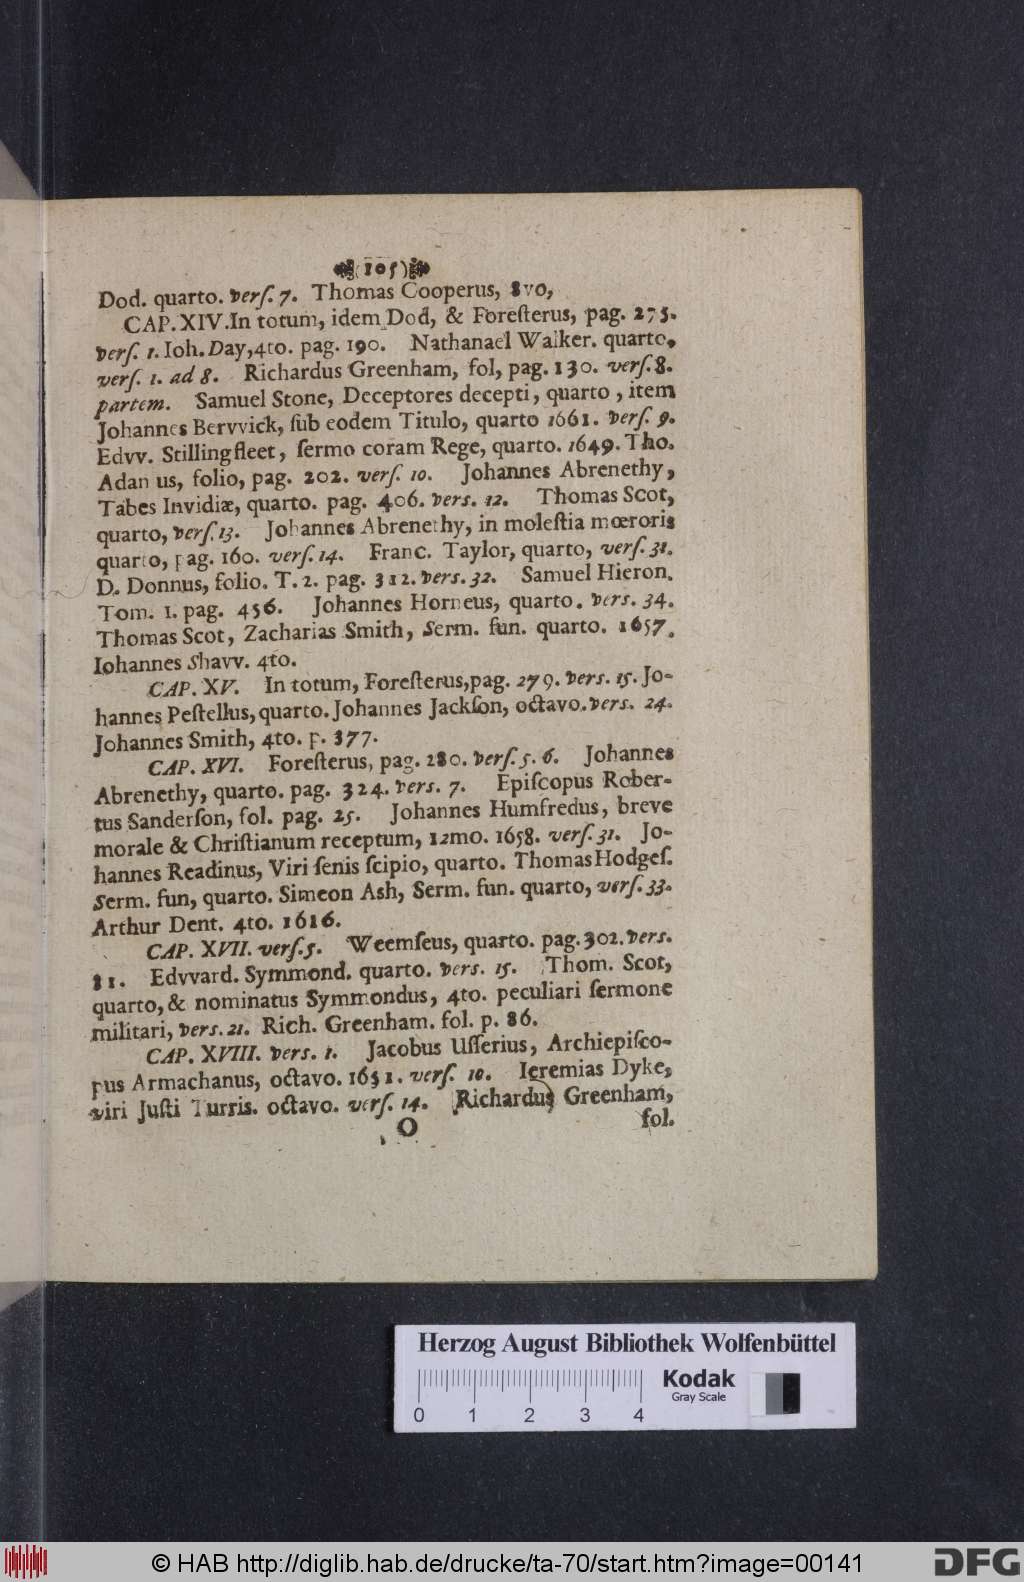 (105)
Dod. quarto. verſ. 7. Thomas Cooperus, 8vo,
CAP. XIV. In totum, idem Dod, & Foreſterus, pag. 275.
verſ. 1. Ioh. Day, 4to. pag. 190. Nathanael Walker. quarto.
verſ. 1. ad 8. Richardus Greenham, fol, pag. 130. verſ. 8.
partem. Samuel Stone, Deceptores decepti, quarto, item
Johannes Bervvick, ſub eodem Titulo, quarto 1661. verſ. 9.
Edvv. Stillingfleet, ſermo coram Rege, quarto. 1649. Tho.
Adan us, folio, pag. 202. verſ. 10. Johannes Abrenethy,
Tabes Invidiæ, quarto. pag. 406. vers. 12. Thomas Scot,
quarto, verſ. 13. Johannes Abrenethy, in moleſtia mœroris
quarto, pag. 160. verſ. 14. Franc. Taylor, quarto, verſ. 31.
D. Donnus, folio. T. 2. pag. 312. vers. 32. Samuel Hieron.
Tom. 1. pag. 456. Johannes Horneus, quarto. vers. 34.
Thomas Scot, Zacharias Smith, Serm. fun. quarto. 1657.
Iohannes Shavv. 4to.
CAP. XV. In totum, Foreſterus, pag. 279. vers. 15. Jo-
hannes Peſtellus, quarto. Johannes Jackſon, octavo. vers. 24.
Johannes Smith, 4to. p. 377.
CAP. XVI. Foreſterus, pag. 280. verſ. 5. 6. Johannes
Abrenethy, quarto. pag. 324. vers. 7. Epiſcopus Rober-
tus Sanderſon, fol. pag. 25. Johannes Humfredus, breve
morale & Chriſtianum receptum, 12mo. 1658. verſ. 31. Jo-
hannes Readinus, Viri ſenis ſcipio, quarto. Thomas Hodgeſ.
Serm. fun, quarto. Simeon Ash, Serm. fun. quarto, verſ. 33.
Arthur Dent. 4to. 1616.
CAP. XVII. verſ. 5. Weemſeus, quarto. pag. 302. vers.
81. Edvvard. Symmond. quarto. vers. 15. Thom. Scot,
quarto, & nominatus Symmondus, 4to. peculiari ſermone
militari, vers. 21. Rich. Greenham. fol. p. 86.
CAP. XVIII. vers. 1. Jacobus Uſſerius, Archiepiſco-
pus Armachanus, octavo. 1651. verſ. 10. Ieremias Dyke,
viri Juſti Turris. octavo. verſ. 14. Richardus Greenham,
O fol.
Herzog August Bibliothek Wolfenbüttel
Kodak
Gray Scale
0 1 2 3 4
© HAB http://diglib.hab.de/drucke/ta-70/start.htm?image=00141
DFG